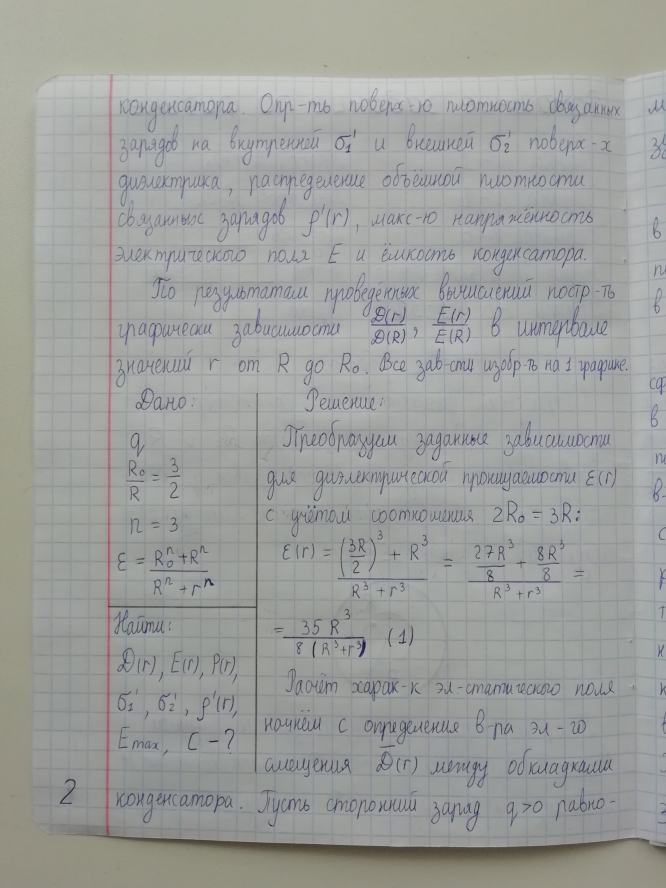 конденсатора. Опр-ть поверх-ю плотность связанных
зарядов на внутренней σ₁' и внешней σ₂' поверх-х
диэлектрика, распределение объёмной плотности
связанных зарядов ρ'(r), макс-ю напряжённость
электрического поля E и ёмкость конденсатора.
По результатам проведённых вычислений постр-ть
графически зависимости D(r)/D(R), E(r)/E(R) в интервале
значений r от R до R₀. Все зав-сти изобр-ть на 1 графике.
Дано:
q
R₀/R = 3/2
n = 3
ε = (R₀ⁿ + Rⁿ)/(Rⁿ + rⁿ)
Найти:
D(r), E(r), P(r),
σ₁', σ₂', ρ'(r),
Emax, C - ?
Решение:
Преобразуем заданные зависимости
для диэлектрической проницаемости ε(r)
с учётом соотношения 2R₀ = 3R:
ε(r) = ((3R/2)³ + R³)/(R³ + r³) = (27R³/8 + 8R³/8)/(R³ + r³) =
= 35R³/(8(R³+r³)) (1)
Расчёт харак-к эл-статического поля
начнём с определения в-ра эл-го
смещения D̅(r) между обкладками
конденсатора. Пусть сторонний заряд q>0 равно-
2
м
в
в
в